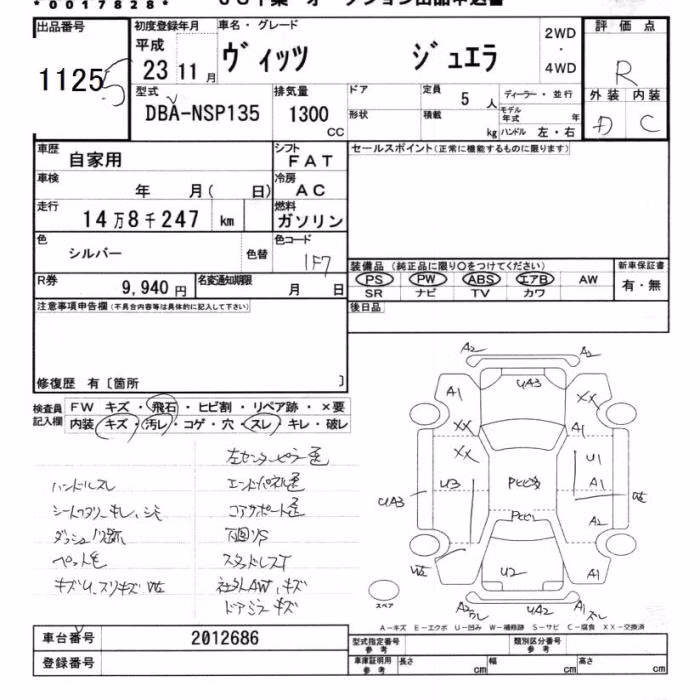 *0017828*
出品番号
1125
初度登録年月
平成
23 11 月
車名・グレード
ヴィッツ ジュエラ
2WD
・
4WD
評価点
R
型式
DBA-NSP135
排気量
1300
CC
ドア
定員
5 人
ディーラー・並行
形状
積載
kg
モデル年式
年
ハンドル 左・右
外装 内装
D C
車歴
自家用
シフト
FAT
セールスポイント(正常に機能するものに限ります)
車検
年 月( 日)
冷房
AC
走行
14万8千247 km
燃料
ガソリン
色
シルバー
色替
色コード
1F7
装備品(純正品に限り○をつけてください)
新車保証書
PS PW ABS エアB AW
SR ナビ TV カワ
有・無
R券
9,940円
名変通知期限
月 日
後日品
注意事項申告欄(不具合内容等は具体的に記入して下さい)
修復歴 有〔箇所 〕
検査員記入欄
FW キズ・飛石・ヒビ割・リペア跡・×要
内装 キズ・汚レ・コゲ・穴・スレ・キレ・破レ
ハンドルスレ
ペット毛
左センターピラー歪
エンドパネル歪
コアサポート歪
下回りS
スタッドレスT
社外AW、キズ
ドアミラーキズ
A2
A2
A1
UA3
XX
XX
A1
XX
U3
U1
A1
UA3
A2
U2
A1
A2
UA2
A1
スペア
A－キズ E－エクボ U－凹み W－補修跡 S－サビ C－腐食 XX－交換済
車台番号
2012686
登録番号
型式指定番号
参考
類別区分番号
参考
車庫証明用
参考
長さ cm
幅 cm
高さ cm